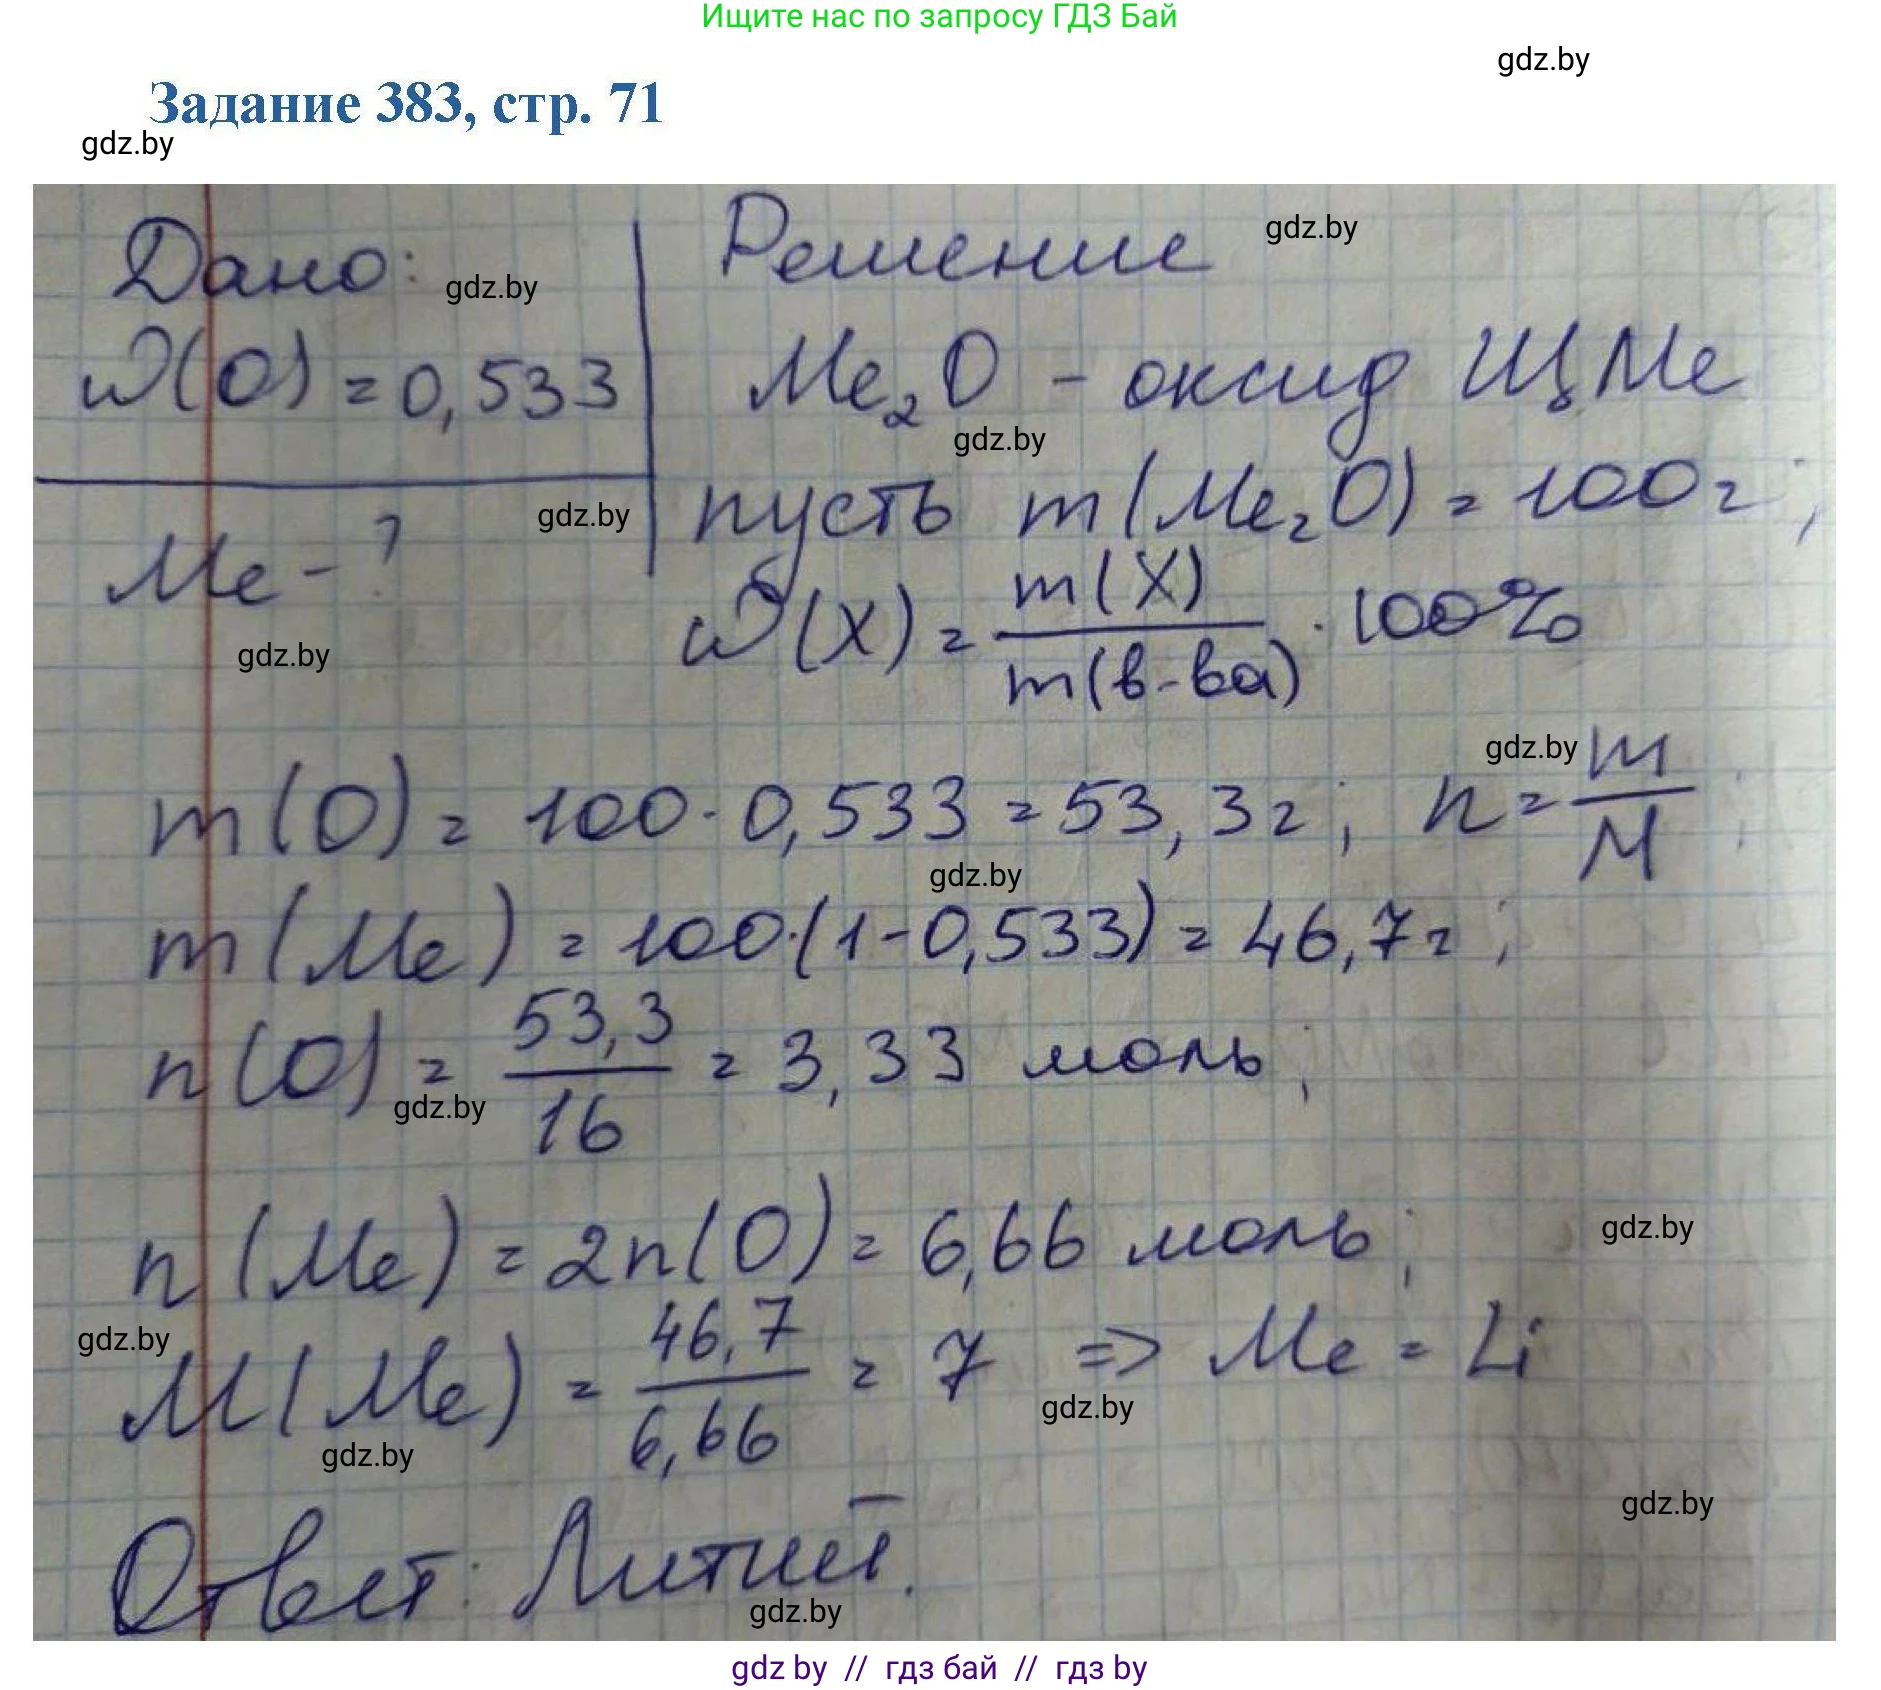 Ищите нас по запросу ГДЗ Бай
gdz.by
Задание 383, стр. 71
gdz.by
Дано:
gdz.by
Решение
gdz.by
ω(O) = 0,533
Me₂O - оксид ЩМе
gdz.by
Me - ?
gdz.by
пусть m(Me₂O) = 100г;
gdz.by
ω(X) = m(X) / m(в-ва) · 100%
gdz.by
m(O) = 100 · 0,533 = 53,3г; n = m / M;
gdz.by
m(Me) = 100·(1-0,533) = 46,7г;
n(O) = 53,3 / 16 = 3,33 моль;
gdz.by
n(Me) = 2n(O) = 6,66 моль;
gdz.by
gdz.by
M(Me) = 46,7 / 6,66 = 7 => Me = Li
gdz.by
gdz.by
gdz.by
Ответ: Литий.
gdz.by
gdz by // гдз бай // гдз by